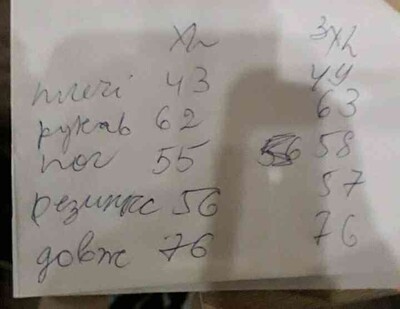 XL 3XL
плечі 43 49
рукав 62 63
пог 55 58
резинка 56 57
довж 76 76